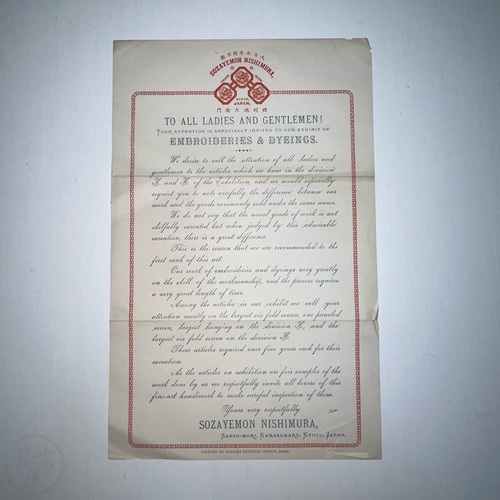 SOZAYEMON NISHIMURA,
KIOTO,
JAPAN.
TO ALL LADIES AND GENTLEMEN!
YOUR ATTENTION IS ESPECIALLY INVITED TO OUR EXHIBIT OF
EMBROIDERIES & DYEINGS.
We desire to call the attention of all ladies and
gentlemen to the articles which we have in the division
and of the Exhibition, and we would especially
request you to note carefully the difference between our
work and the goods commonly sold under the same name.
We do not say that the usual grade of work is not
skilfully executed but when judged by this admirable
execution, there is a great difference.
This is the reason that we are recommended to the
first rank of this art.
Our work of embroideries and dyeings vary greatly
on the skill of the workmanship, and the process requires
a very great length of time.
Among the articles in our exhibit we call your
attention mostly on the largest six fold screen, one paneled
screen, largest hanging on the division and the
largest six fold screen on the division
These articles required over five years each for their
execution.
As the articles on exhibition are fair samples of the
work done by us we respectfully invite all lovers of this
fine-art handiwork to make careful inspection of them.
Yours very respectfully
SOZAYEMON NISHIMURA,
SANJO-DORI, KARASUMARU, KYOTO, JAPAN.
PRINTED BY PRINTING OFFICE, KOBE.